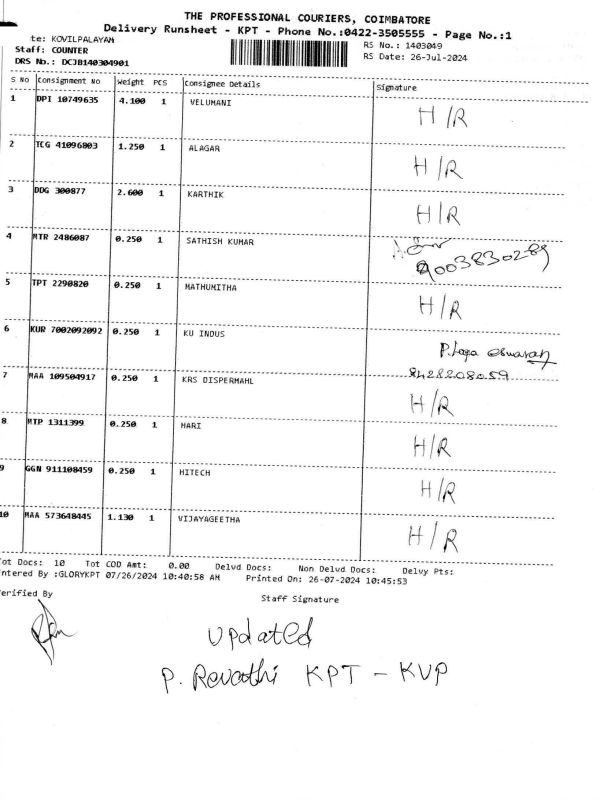 THE PROFESSIONAL COURIERS, COIMBATORE
Delivery Runsheet - KPT - Phone No.:0422-3505555 - Page No.:1
te: KOVILPALAYAM
RS No.: 1403049
Staff: COUNTER
RS Date: 26-Jul-2024
DRS No.: DCJB140304901
S No Consignment No Weight PCS Consignee Details Signature
1 DPI 10749635 4.100 1 VELUMANI H/R
2 TCG 41096803 1.250 1 ALAGAR H/R
3 DDG 300877 2.600 1 KARTHIK H/R
4 MTR 2486087 0.250 1 SATHISH KUMAR
9003830289
5 TPT 2290820 0.250 1 MATHUMITHA H/R
6 KUR 7002092092 0.250 1 KU INDUS P.
8428208059
7 MAA 109504917 0.250 1 KRS DISPERMAHL H/R
8 MTP 1311399 0.250 1 HARI H/R
9 GGN 911108459 0.250 1 HITECH H/R
10 MAA 573648445 1.130 1 VIJAYAGEETHA H/R
ot Docs: 10 Tot COD Amt: 0.00 Delvd Docs: Non Delvd Docs: Delvy Pts:
ntered By :GLORYKPT 07/26/2024 10:40:58 AM Printed On: 26-07-2024 10:45:53
erified By Staff Signature
updated
P. Revathi KPT - KVP